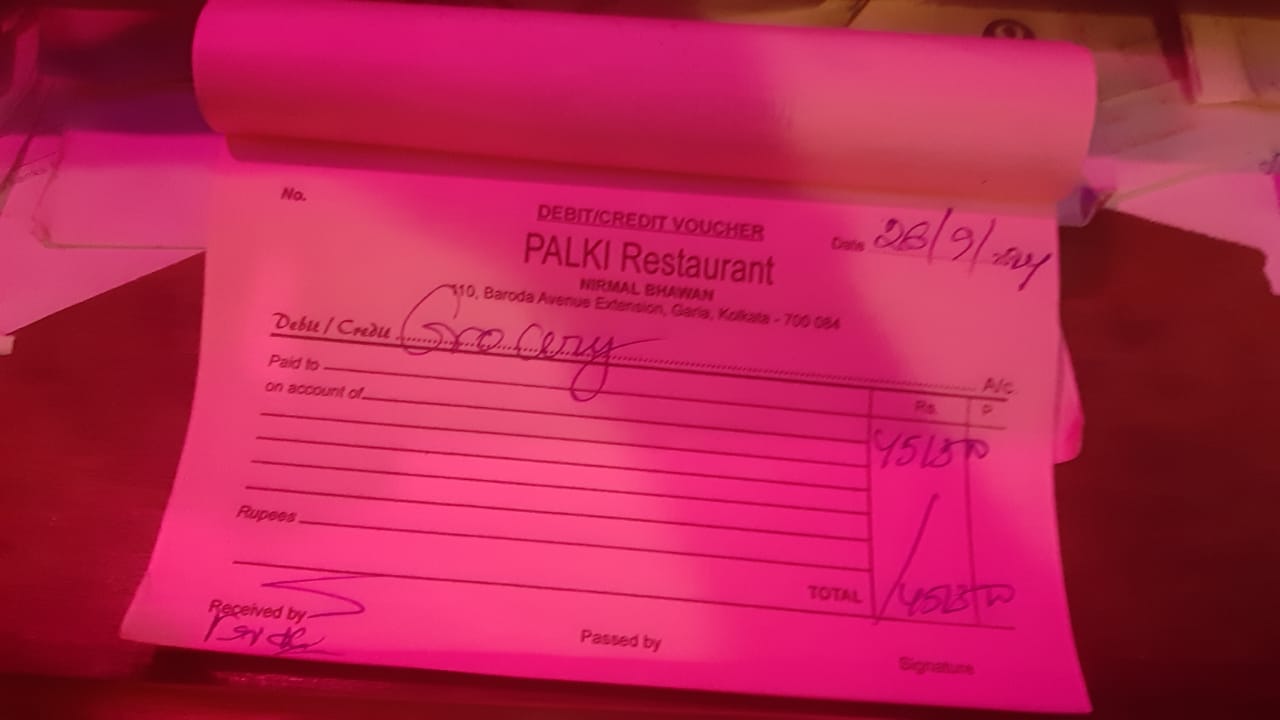 No.
DEBIT/CREDIT VOUCHER
Date 26/9/2024
PALKI Restaurant
NIRMAL BHAWAN
110, Baroda Avenue Extension, Garia, Kolkata - 700 084
Debit / Credit Grocery A/c
Paid to
Rs. P
on account of
4513 00
Rupees
TOTAL 4513 00
Received by
Passed by
Signature